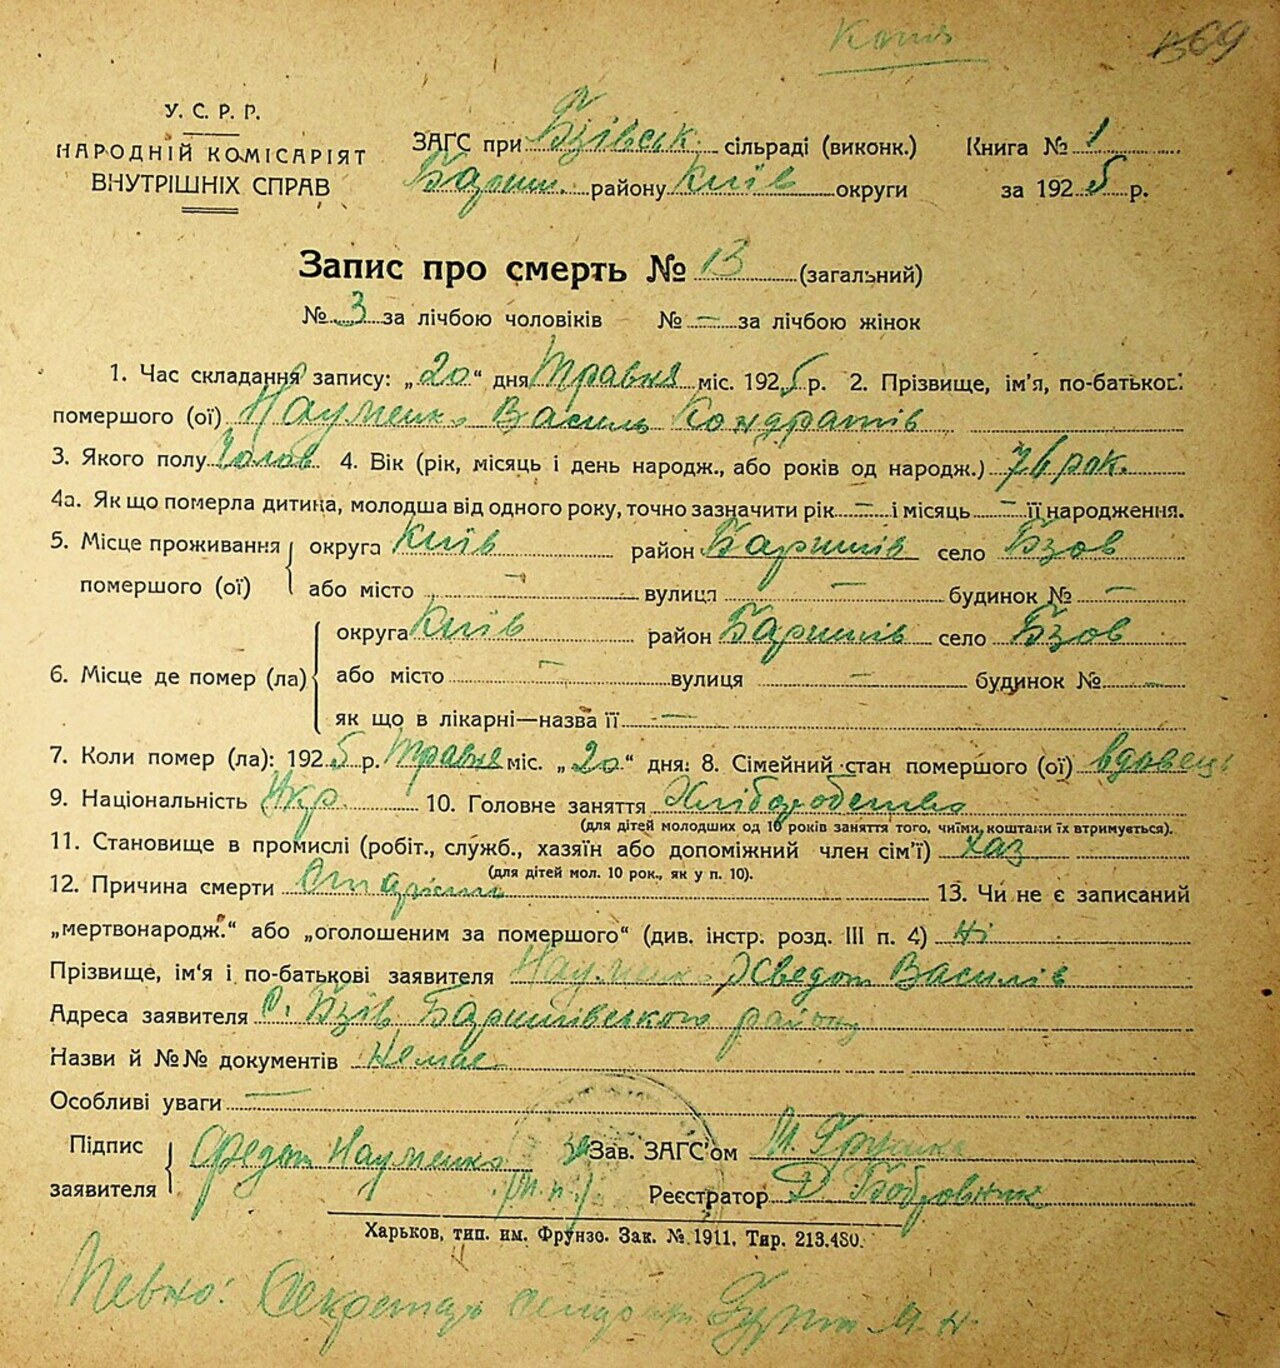 Копія
69
У. С. Р. Р.
НАРОДНІЙ КОМІСАРІЯТ
ВНУТРІШНІХ СПРАВ
ЗАГС при Бзівськ. сільраді (виконк.) Книга № 1
Бариш. району Київ округи за 1925 р.
Запис про смерть № 13 (загальний)
№ 3 за лічбою чоловіків № — за лічбою жінок
1. Час складання запису: „20“ дня Травня міс. 1925 р. 2. Прізвище, ім'я, по-батькові
помершого (ої) Науменко Василь Кондратів
3. Якого полу Чолов 4. Вік (рік, місяць і день народж., або років од народж.) 76 рок.
4а. Як що померла дитина, молодша від одного року, точно зазначити рік — і місяць — її народження.
5. Місце проживання помершого (ої) округа Київ район Баришів село Бзов
або місто — вулиця — будинок № —
6. Місце де помер (ла) округа Київ район Баришів село Бзов
або місто — вулиця — будинок № —
як що в лікарні—назва її —
7. Коли помер (ла): 1925 р. Травня міс. „20“ дня: 8. Сімейний стан помершого (ої) вдовець
9. Національність Укр. 10. Головне заняття Хліборобство
(для дітей молодших од 10 років заняття того, чиїми коштами їх втримується).
11. Становище в промислі (робіт., служб., хазяїн або допоміжний член сім'ї) хаз
(для дітей мол. 10 рок., як у п. 10).
12. Причина смерти Старість 13. Чи не є записаний
„мертвонародж.“ або „оголошеним за помершого“ (див. інстр. розд. III п. 4) Ні
Прізвище, ім'я і по-батькові заявителя Науменко Хведот Василів
Адреса заявителя с. Бзів Баришівського району
Назви й №№ документів Немає
Особливі уваги —
Підпис заявителя Федот Науменко Зав. ЗАГС'ом М.
(М.п.) Реєстратор Д. Бобровник
Харьков, тип. им. Фрунзе. Зак. № 1911. Тир. 213.480.
Певно: Секретар сільради М. Н.